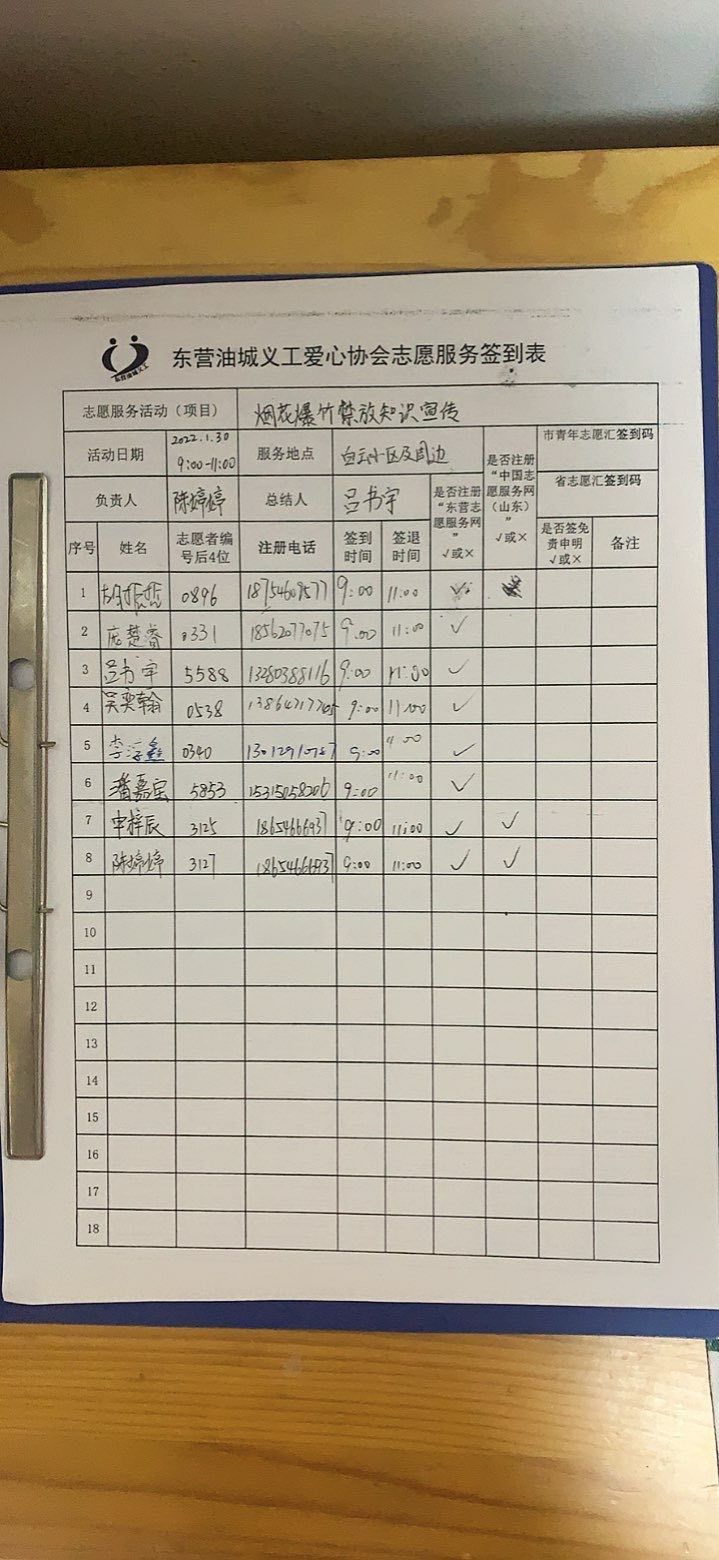 东营油城义工
东营油城义工爱心协会志愿服务签到表
志愿服务活动（项目） 烟花爆竹禁放知识宣传
活动日期 2022.1.30 9:00-11:00 服务地点 白云小区及周边
是否注册“东营志愿服务网” √或×
是否注册“中国志愿服务网（山东）” √或×
市青年志愿汇签到码
省志愿汇签到码
负责人 陈婷婷 总结人 吕书宇
序号 姓名 志愿者编号后4位 注册电话 签到时间 签退时间 是否签免责申明 √或× 备注
1 0896 18754609577 9:00 11:00 √
2 庞楚睿 331 18562077075 9:00 11:00 √
3 吕书宇 5588 13280388116 9:00 11:00 √
4 吴奕翰 0538 9:00 11:00 √
5 0340 9:00 √
6 潘嘉宝 5853 15315058206 9:00 11:00 √
7 申梓辰 3125 1865466693 9:00 11:00 √ √
8 陈婷婷 3127 1865466693 9:00 11:00 √ √
9
10
11
12
13
14
15
16
17
18